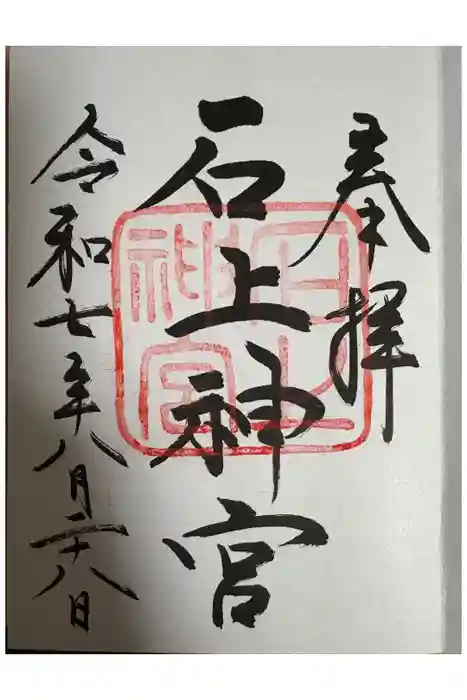 奉拝
石上神宮
石上神宮
令和七年八月二十八日